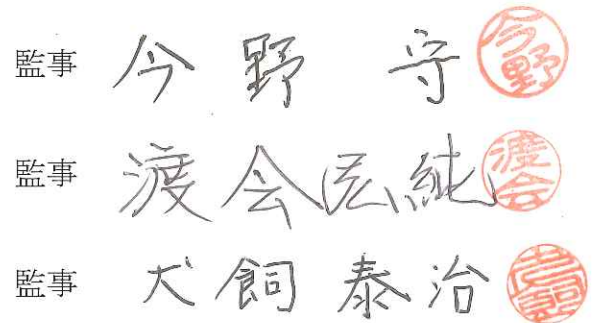 監事 今野 守 今野
監事 渡会 純 渡会
監事 犬飼泰治